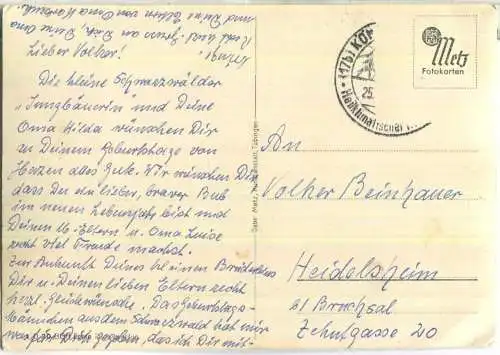 Lieber Volker!
Die kleine Schwarzwälder
"Jungbäuerin" und Deine
Oma Hilda wünschen Dir
zu Deinem Geburtstage von
Herzen alles Gute. Wir wünschen Dir
dass Du ein lieber, braver Bub
im neuen Lebensjahr bist und
Deinen Eltern u. Oma Luise
recht viel Freude machst.
Zur Ankunft Deines kleinen Brüderleins
Dir u. Deinen lieben Eltern recht
herzl. Glückwünsche. Das Geburtstags-
aus dem Schwarzwald hat mir
gegeben, das ich Dir mit-
bringe.
Dich, Deine Oma
und Deine Eltern von Oma
(17b) KÖ
25.
Heilklimatischer
Metz
Fotokarten
Gebr. Metz, Tübingen
An
Volker Beinhauer
Heidelsheim
b/ Bruchsal
Zehntgasse 20